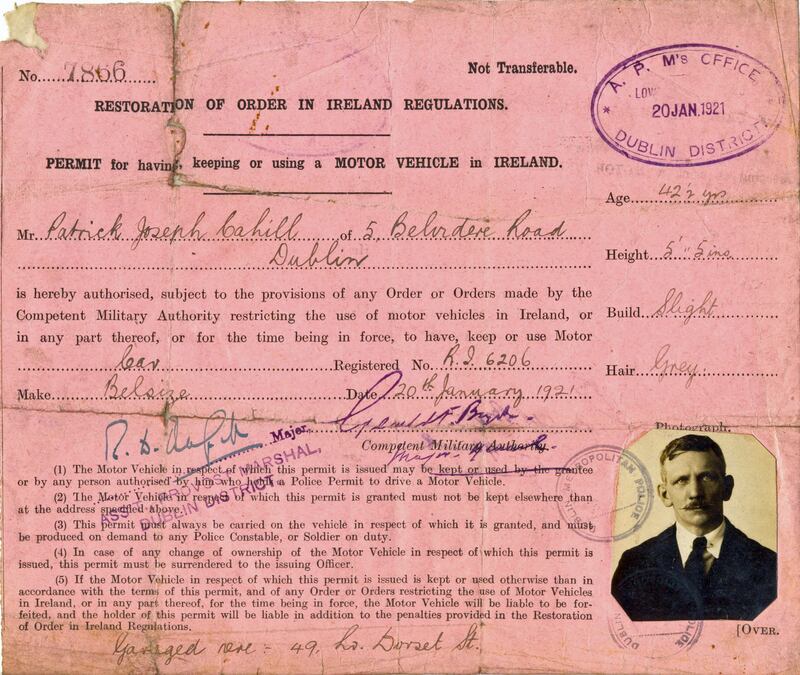 No. 7866
Not Transferable.
RESTORATION OF ORDER IN IRELAND REGULATIONS.
A. P. M's OFFICE
20 JAN. 1921
DUBLIN DISTRICT
PERMIT for having, keeping or using a MOTOR VEHICLE in IRELAND.
Age 42½ yrs
Mr. Patrick Joseph Cahill of 5 Belvidere Road
Dublin
Height 5' 5 ins
is hereby authorised, subject to the provisions of any Order or Orders made by the
Competent Military Authority restricting the use of motor vehicles in Ireland, or
in any part thereof, or for the time being in force, to have, keep or use Motor
Build Slight
Car Registered No. R.I. 6206
Hair Grey
Make Belsize Date 20th January 1921
Major,
Competent Military Authority
ASST. PROVOST MARSHAL,
DUBLIN DISTRICT
Photograph.
(1) The Motor Vehicle in respect of which this permit is issued may be kept or used by the grantee
or by any person authorised by him who holds a Police Permit to drive a Motor Vehicle.
(2) The Motor Vehicle in respect of which this permit is granted must not be kept elsewhere than
at the address specified above.
(3) This permit must always be carried on the vehicle in respect of which it is granted, and must
be produced on demand to any Police Constable, or Soldier on duty.
(4) In case of any change of ownership of the Motor Vehicle in respect of which this permit is
issued, this permit must be surrendered to the issuing Officer.
(5) If the Motor Vehicle in respect of which this permit is issued is kept or used otherwise than in
accordance with the terms of this permit, and of any Order or Orders restricting the use of Motor Vehicles
in Ireland, or in any part thereof, for the time being in force, the Motor Vehicle will be liable to be for-
feited, and the holder of this permit will be liable in addition to the penalties provided in the Restoration
of Order in Ireland Regulations.
DUBLIN METROPOLITAN POLICE
[OVER.
Garaged 49, Dorset St.